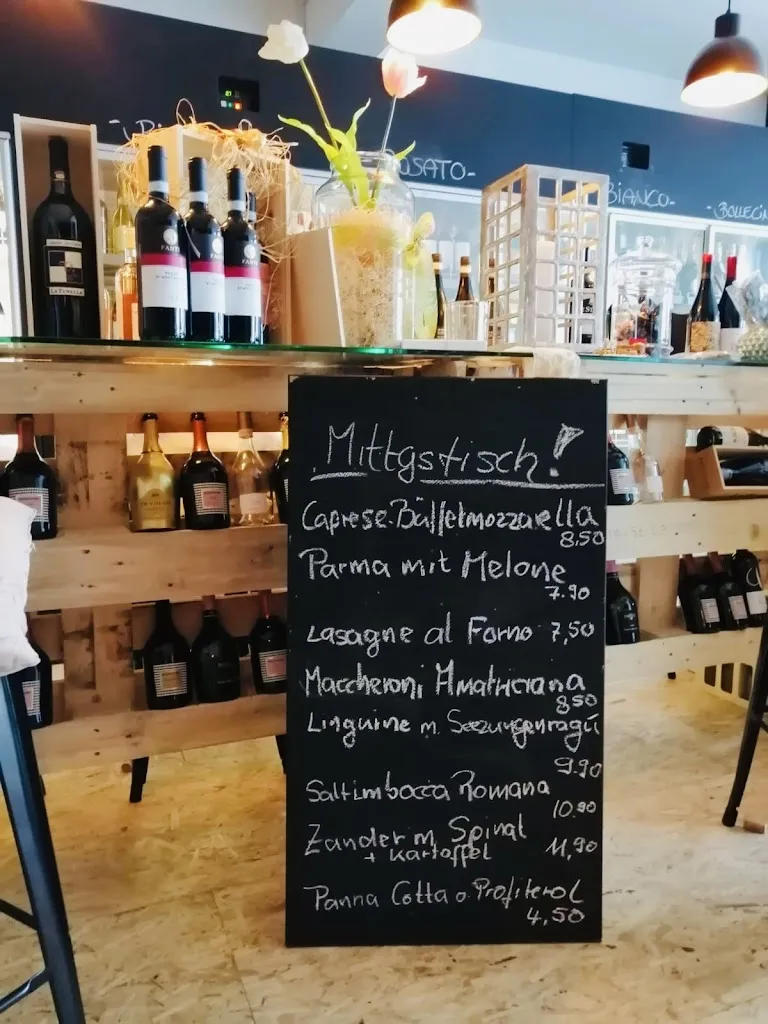 -BIANCO-
FANTI
FANTI
LA TUNELLA
Mittgstisch!
Caprese-Büffelmozzarella
8,50
Parma mit Melone
7.90
Lasagne al Forno 7,50
Maccheroni Amatriciana
8,50
Linguine m. Seezungenragú
9.90
Saltimbocca Romana
10.90
Zander m. Spinat
+ Kartoffel 11,90
Panna Cotta o. Profiterol
4,50